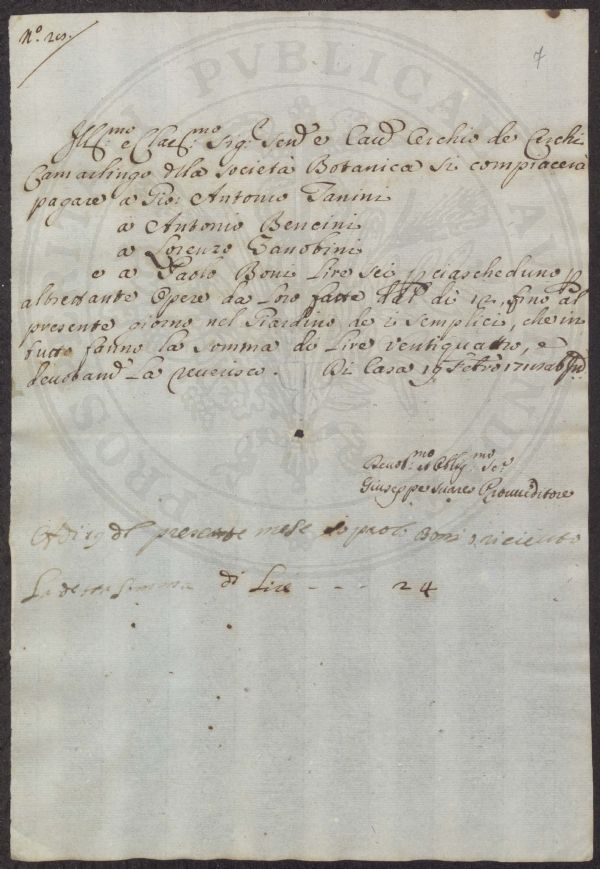 7
Ill.mo e Clar.mo Sig.r Sen.e e Cav.e Cerchio de Cerchi
Camarlingo della Società Botanica si compiacerà
pagare a Gio: Antonio Tanini
a Antonio Bencini
a Lorenzo Zanobini
e a Paolo Boni Lire Sei p ciascheduno p
altrettante Opere da Loro fatte dal dì 12, fino al
presente giorno nel Giardino de i Semplici, che in
tutto fanno la somma di Lire ventiquattro, e
devotam.e La reverisco. Di Casa 19 Febro
Devot.mo et Obblig.mo Se.r
Giuseppe Suares Provveditore
Adi 19 del presente mese io paolo Boni ò riceuto
La detta somma di Lire - - - 24
PVBLICAE